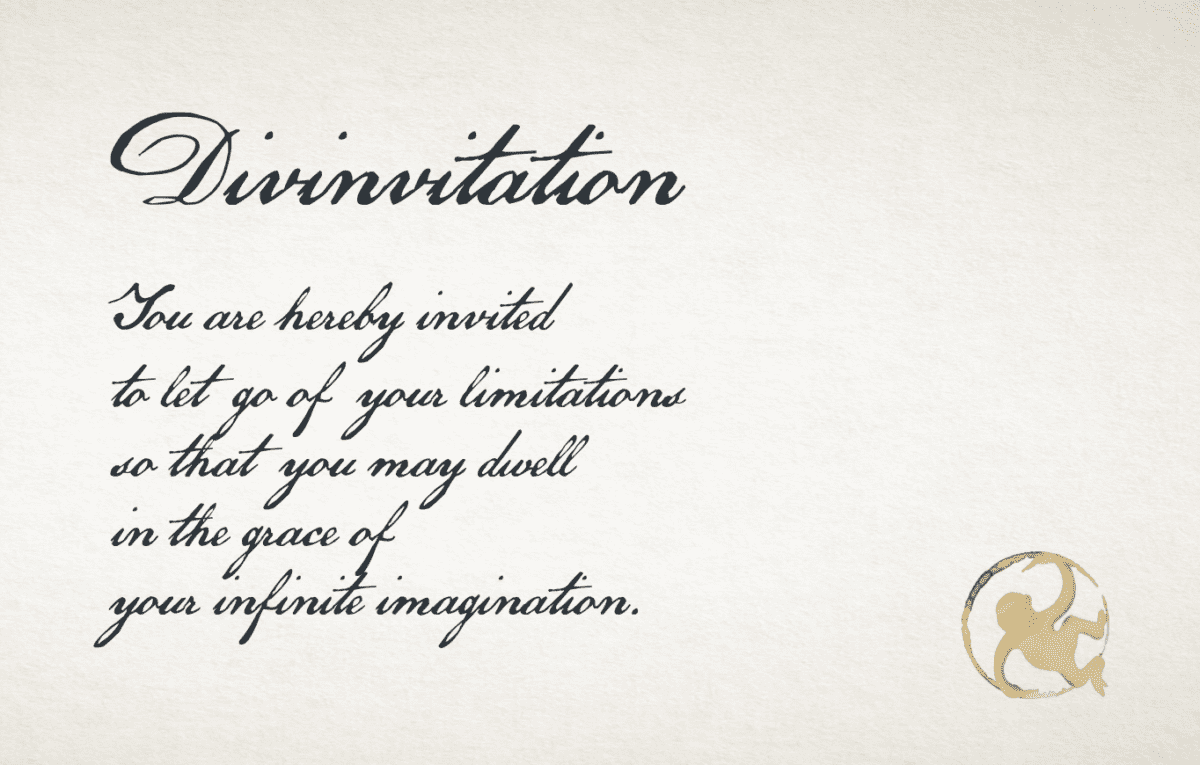 Divinvitation
You are hereby invited
to let go of your limitations
so that you may dwell
in the grace of
your infinite imagination.